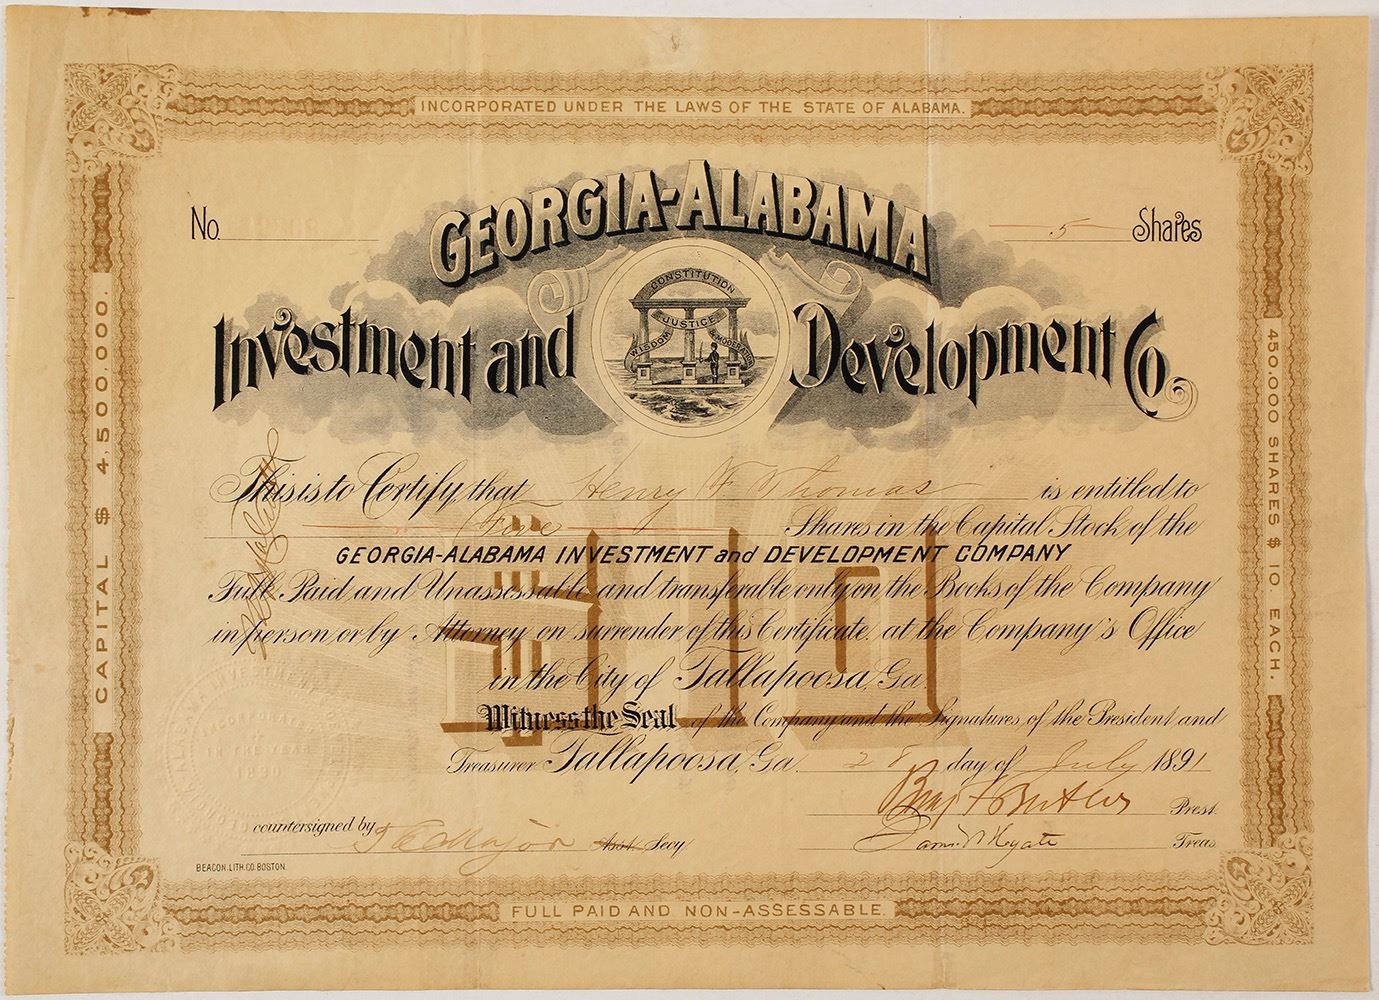 INCORPORATED UNDER THE LAWS OF THE STATE OF ALABAMA.
CAPITAL $ 4,500.000.
450.000 SHARES $ 10. EACH.
No.
5 Shares
GEORGIA-ALABAMA
Investment and Development Co.
CONSTITUTION
JUSTICE
WISDOM
MODERATION
This is to Certify that Henry F Thomas is entitled to
Five Shares in the Capital Stock of the
GEORGIA-ALABAMA INVESTMENT and DEVELOPMENT COMPANY
Full Paid and Unassessable and transferable only on the Books of the Company
in person or by Attorney on surrender of this Certificate at the Company's Office
in the City of Tallapoosa, Ga.
$10
Witness the Seal of the Company and the Signatures of the President and
Treasurer Tallapoosa, Ga. 28 day of July 1891
Benj F Butler Prest.
countersigned by Major Asst. Secy.
Treas.
BEACON LITH. CO. BOSTON.
FULL PAID AND NON-ASSESSABLE.